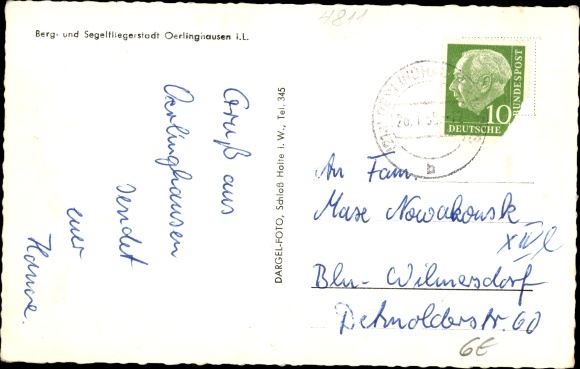 4811
Berg- und Segelfliegerstadt Oerlinghausen i.L.
Gruß aus
Oerlinghausen
sendet
euer
DARGEL-FOTO, Schloß Holte i. W., Tel. 345
10
DEUTSCHE
BUNDESPOST
b
An Fam.
Max Nowakowsk
Bln- Wilmersdorf
Detmolderstr. 60
6E